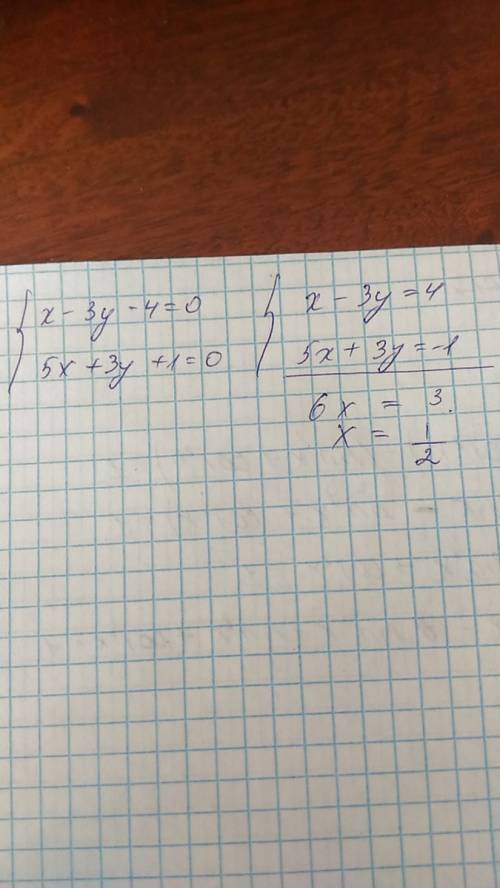 { x - 3y - 4 = 0
5x + 3y + 1 = 0
{ x - 3y = 4
5x + 3y = -1
6x = 3.
x = 1/2